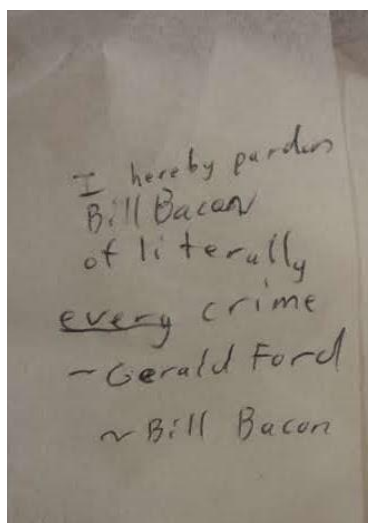 I hereby pardon
Bill Bacon
of literally
every crime
~Gerald Ford
~Bill Bacon